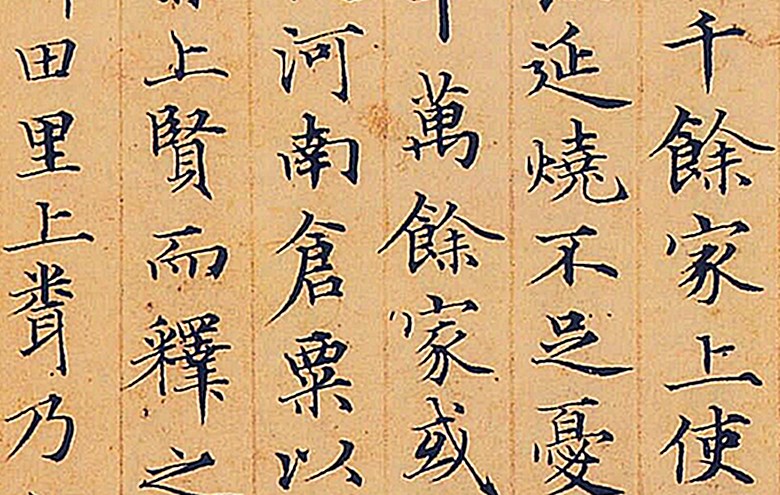 千餘家上使
延燒不足憂
萬餘家或
河南倉粟以
上賢而釋之
田里上乃